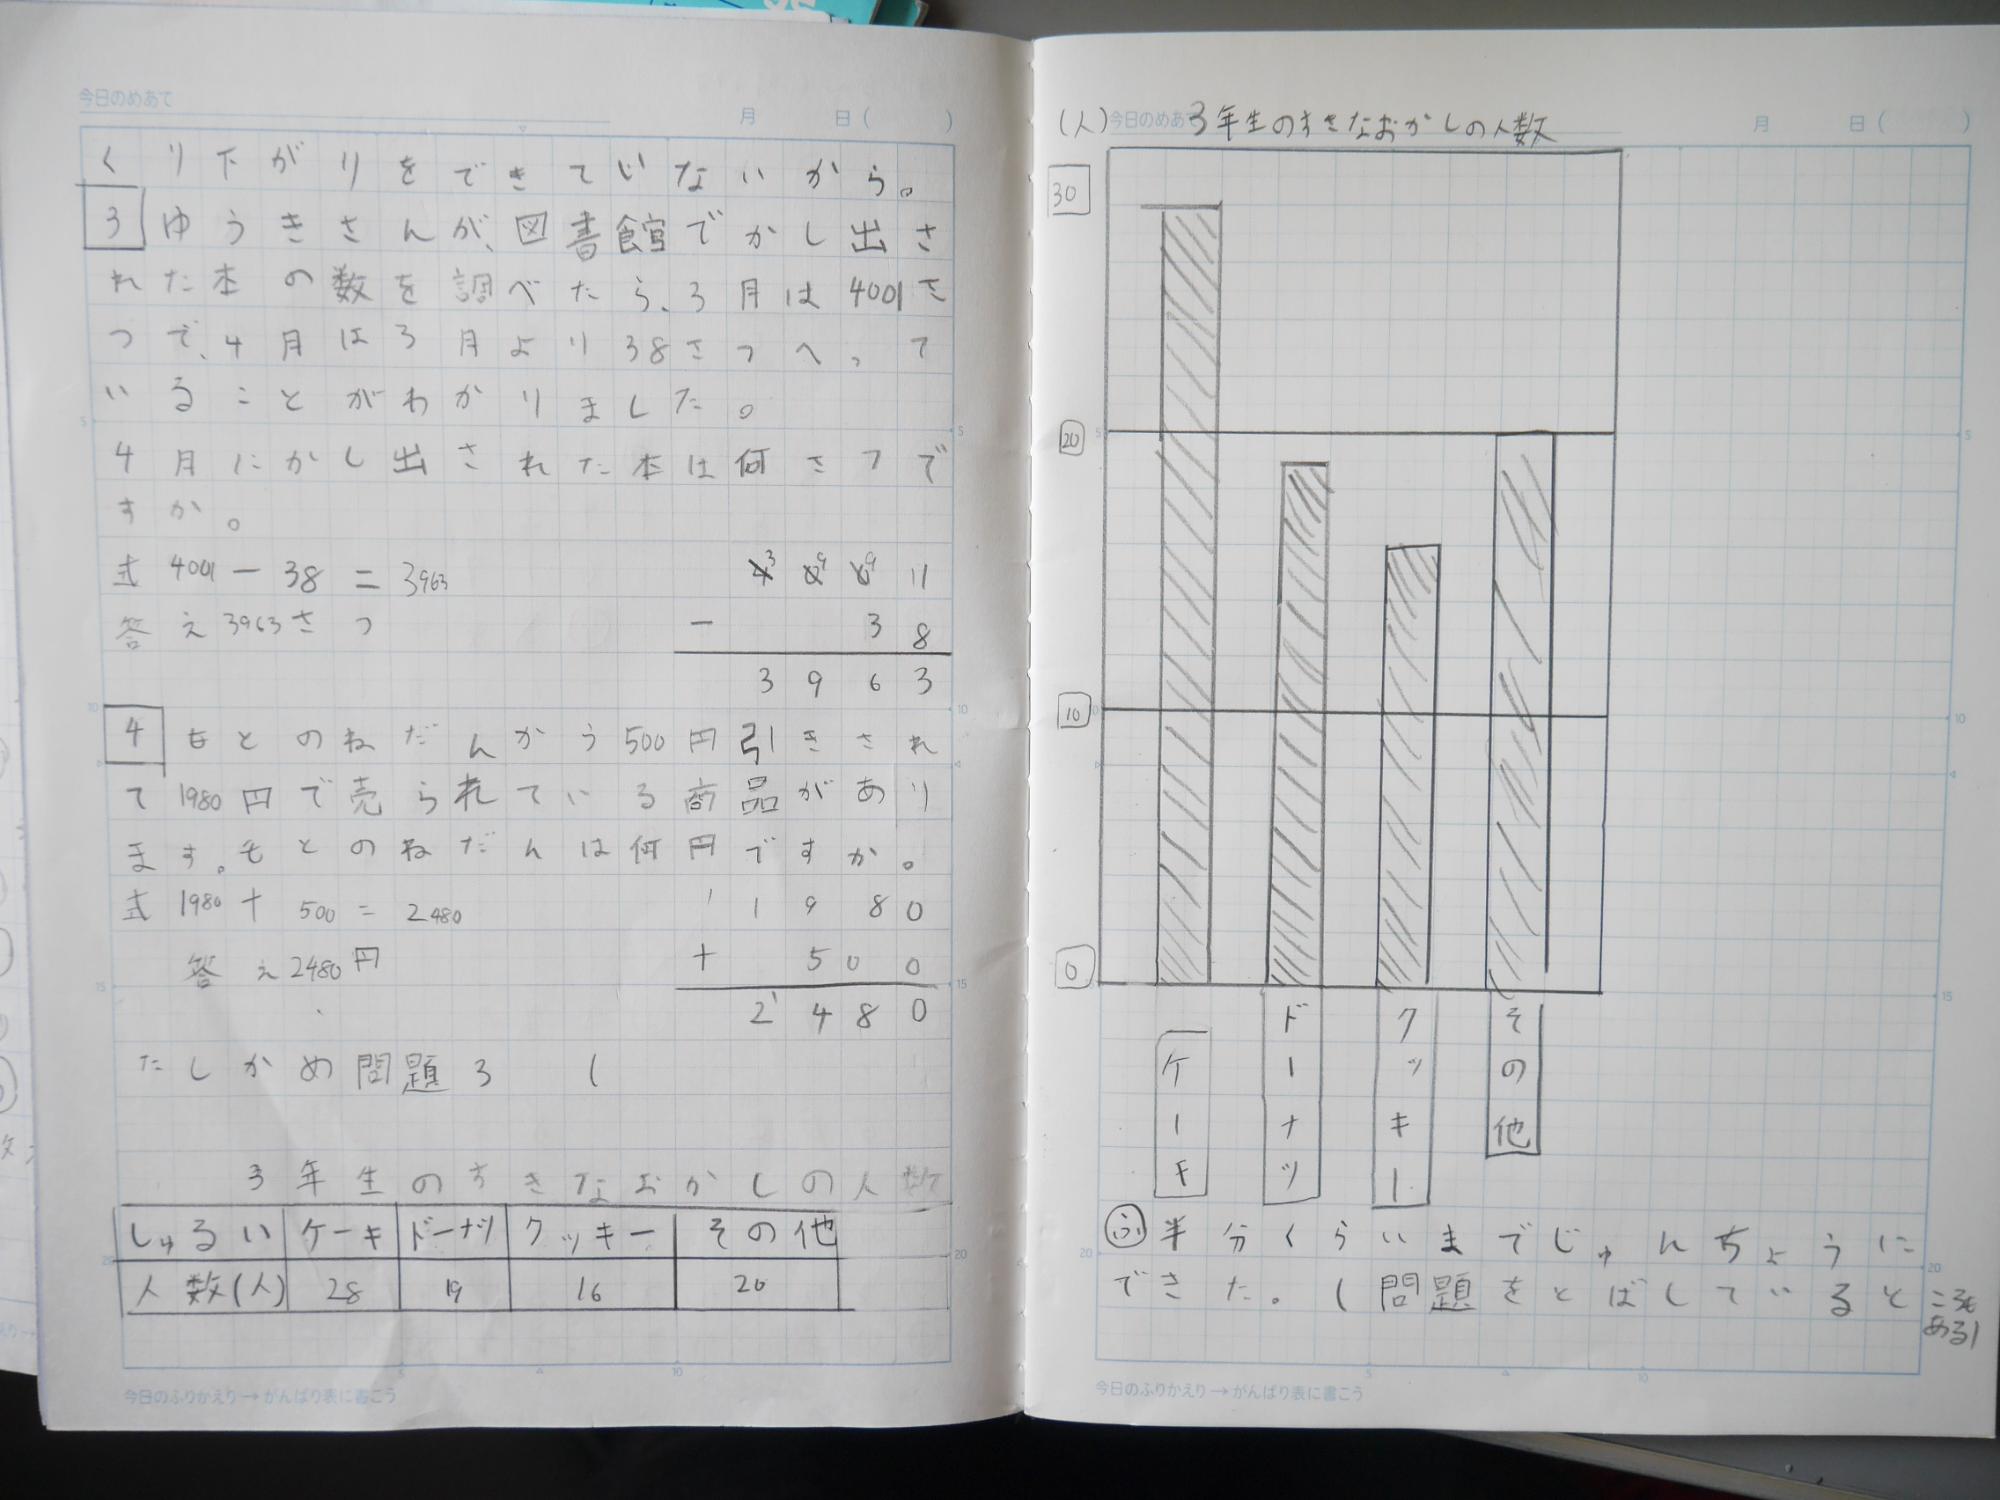 今日のめあて
月 日( )
くり下がりをできていないから。
3 ゆうきさんが、図書館でかし出さ
れた本の数を調べたら、3月は4001さ
つで、4月は3月より38さつへって
いることがわかりました。
4月にかし出された本は何さつで
すか。
式 4001 － 38 ＝ 3963
答え 3963さつ
4 3 0 9 0 9 11
－ 38
3963
4 もとのねだんから500円引きされ
て1980円で売られている商品があり
ます。もとのねだんは何円ですか。
式 1980 ＋ 500 ＝ 2480
答え 2480円
1 1980
＋ 500
2480
たしかめ問題3 (
3年生のすきなおかしの人数
しゅるい ケーキ ドーナツ クッキー その他
人数(人) 28 19 16 20
今日のふりかえり→がんばり表に書こう
今日のめあて
月 日( )
(人) 3年生のすきなおかしの人数
30
20
10
0
ケーキ
ドーナツ
クッキー
その他
ふ 半分くらいまでじゅんちょうに
できた。( 問題をとばしているところも
ある)
今日のふりかえり→がんばり表に書こう